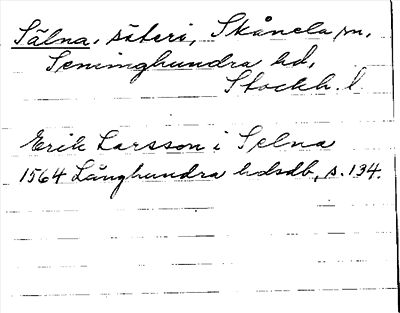 Sälna, säteri, Skånela sn,
Seminghundra hd,
Stockh. l.
Erik Larsson i Selna
1564 Långhundra hdsdb, s. 134.